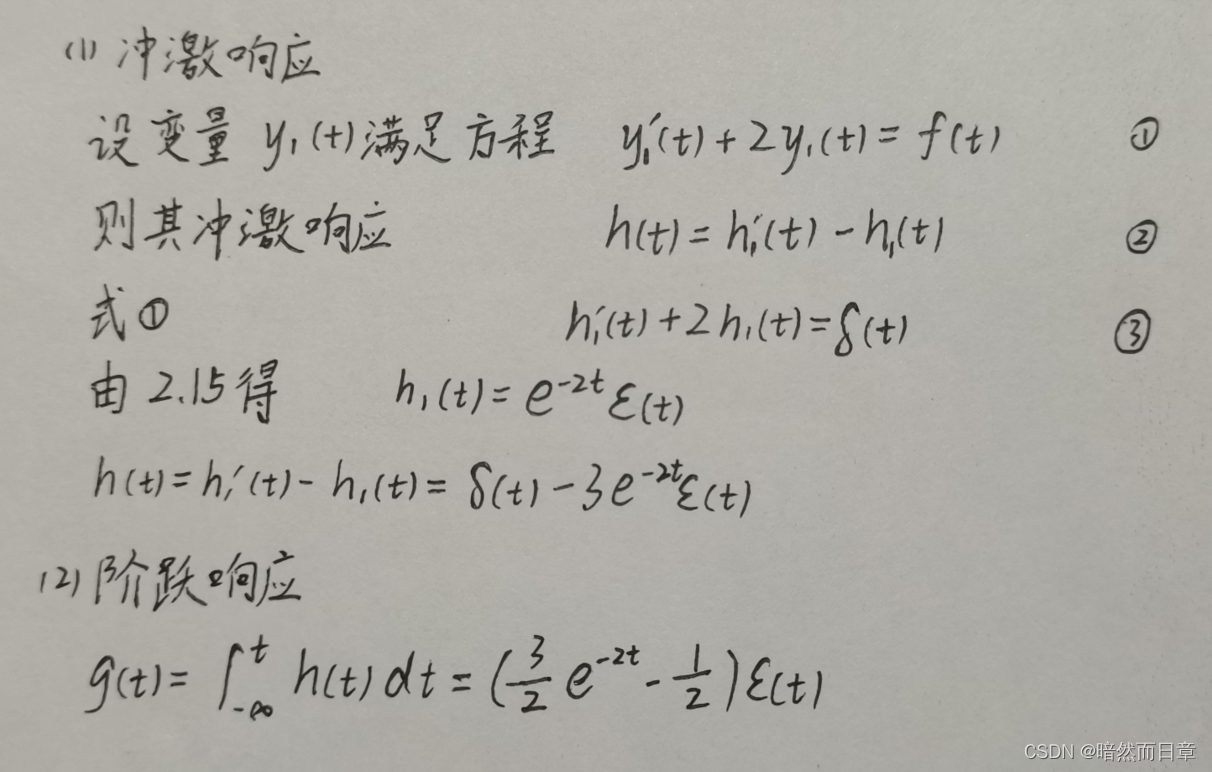 (1) 冲激响应
设变量 y₁(t)满足方程 y₁′(t)+2y₁(t)=f(t) ①
则其冲激响应 h(t)=h₁′(t)-h₁(t) ②
式① h₁′(t)+2h₁(t)=δ(t) ③
由2.15得 h₁(t)=e^{-2t}ε(t)
h(t)=h₁′(t)-h₁(t)=δ(t)-3e^{-2t}ε(t)
(2) 阶跃响应
g(t)=∫_{-∞}^{t} h(t)dt=(3/2 e^{-2t}-1/2)ε(t)
CSDN @暗然而日章